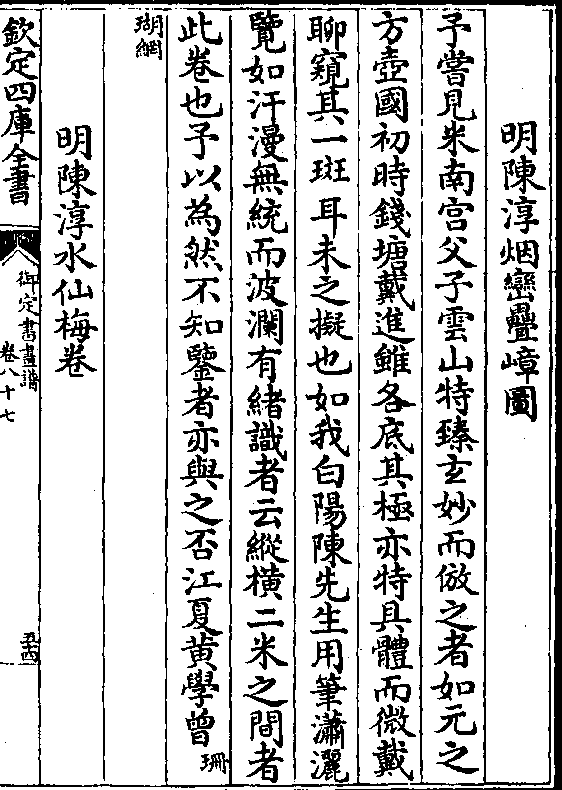 明陳淳烟巒疊嶂圖
予嘗見米南宮父子雲山特臻玄妙而倣之者如元之
方壺國初時錢塘戴進雖各底其極亦特具體而微戴
聊窺其一斑耳未之擬也如我白陽陳先生用筆瀟灑
覽如汗漫無統而波瀾有緒識者云縱橫二米之間者
此卷也予以為然不知鑒者亦與之否江夏黄學曾珊
瑚網
明陳淳水仙梅卷
欽定四庫全書
御定書畫譜
卷八十七
五四